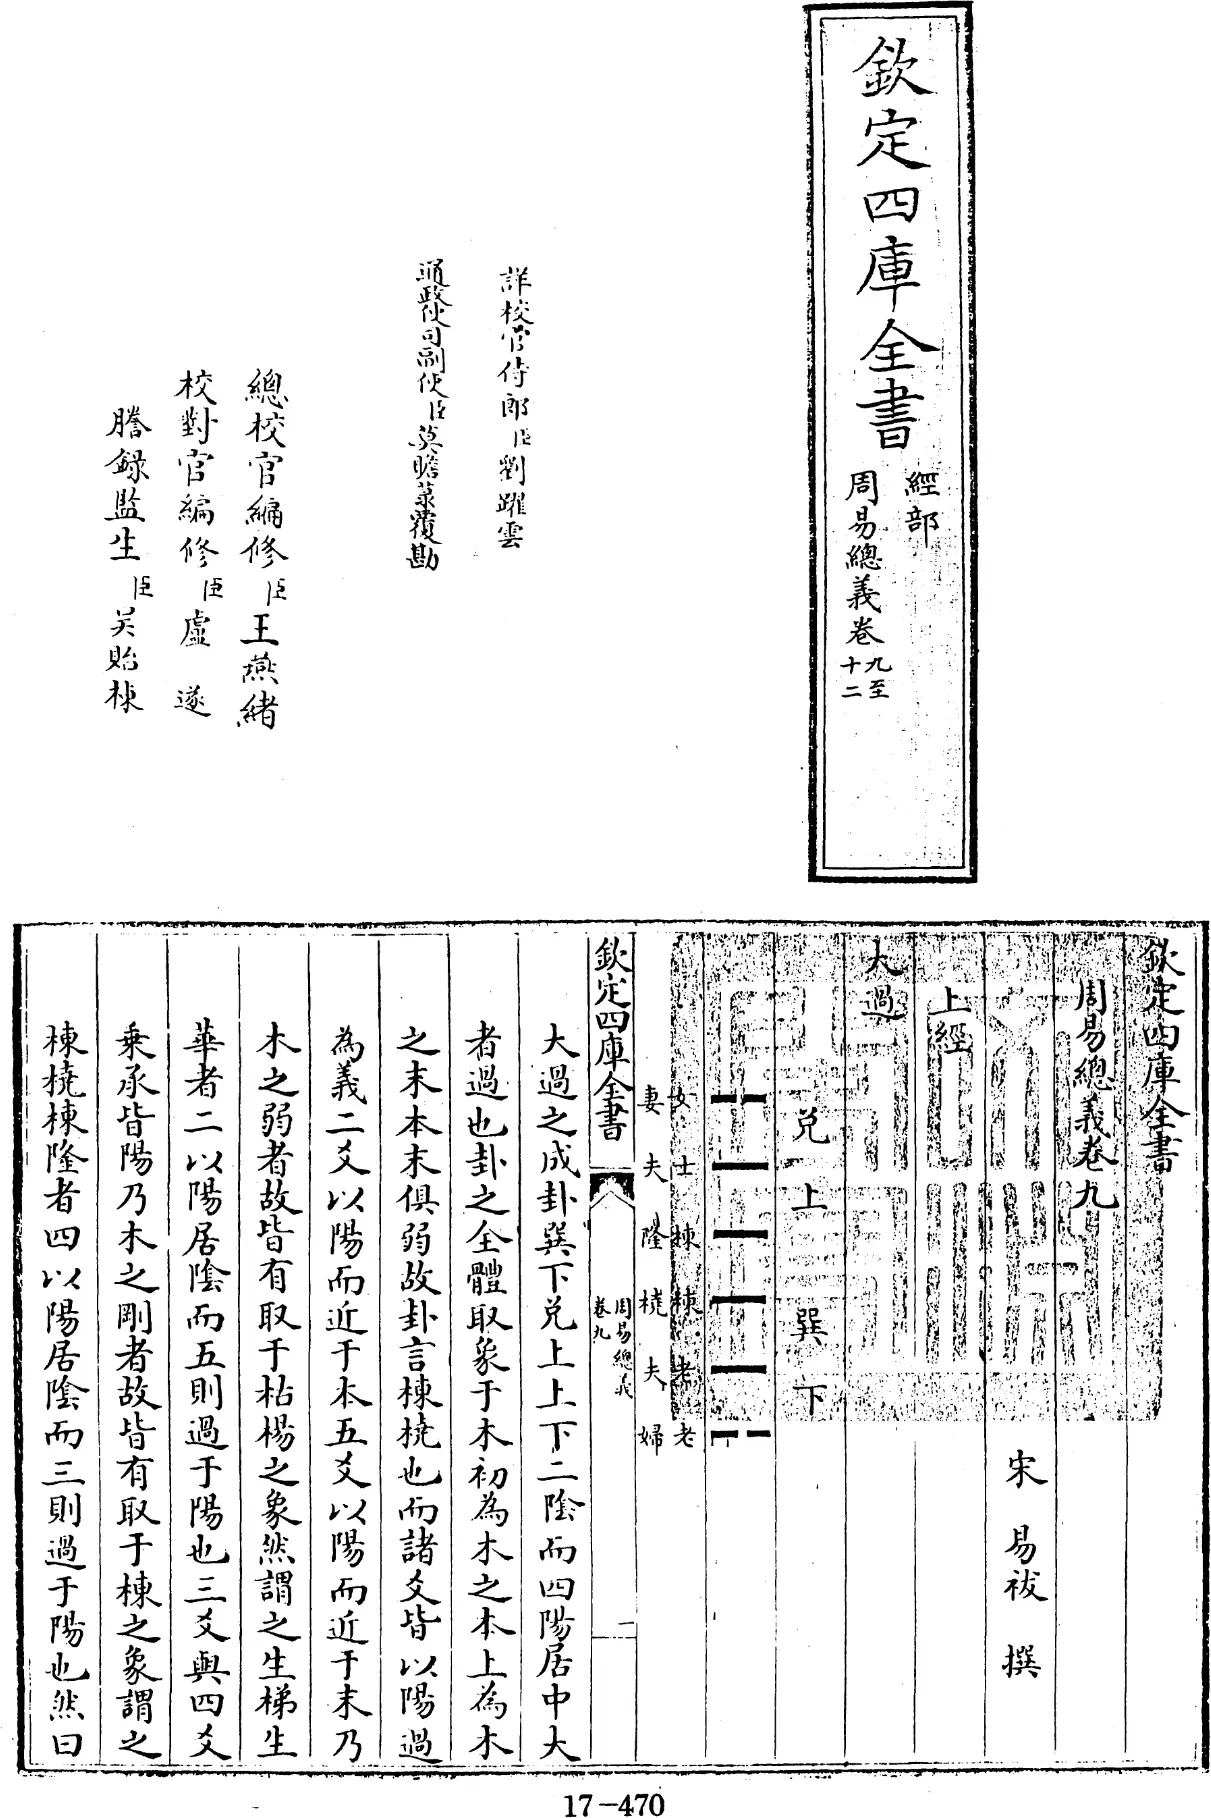 欽定四庫全書
經部
周易總義卷九至
十二
詳校官侍郎臣劉躍雲
通政使司副使臣莫瞻菉覆勘
總校官編修臣王燕緒
校對官編修臣盧遂
謄錄監生臣吳貽棟
欽定四庫全書
周易總義卷九
宋 易祓 撰
上經
大過
兌上 巽下
女 士 棟 棟 老 老
妻 夫 隆 橈 夫 婦
欽定四庫全書
周易總義
卷九
一
大過之成卦巽下兌上上下二陰而四陽居中大
者過也卦之全體取象于木初為木之本上為木
之末本末俱弱故卦言棟橈也而諸爻皆以陽過
為義二爻以陽而近于本五爻以陽而近于末乃
木之弱者故皆有取于枯楊之象然謂之生梯生
華者二以陽居陰而五則過于陽也三爻與四爻
乘承皆陽乃木之剛者故皆有取于棟之象謂之
棟橈棟隆者四以陽居陰而三則過于陽也然曰
17-470